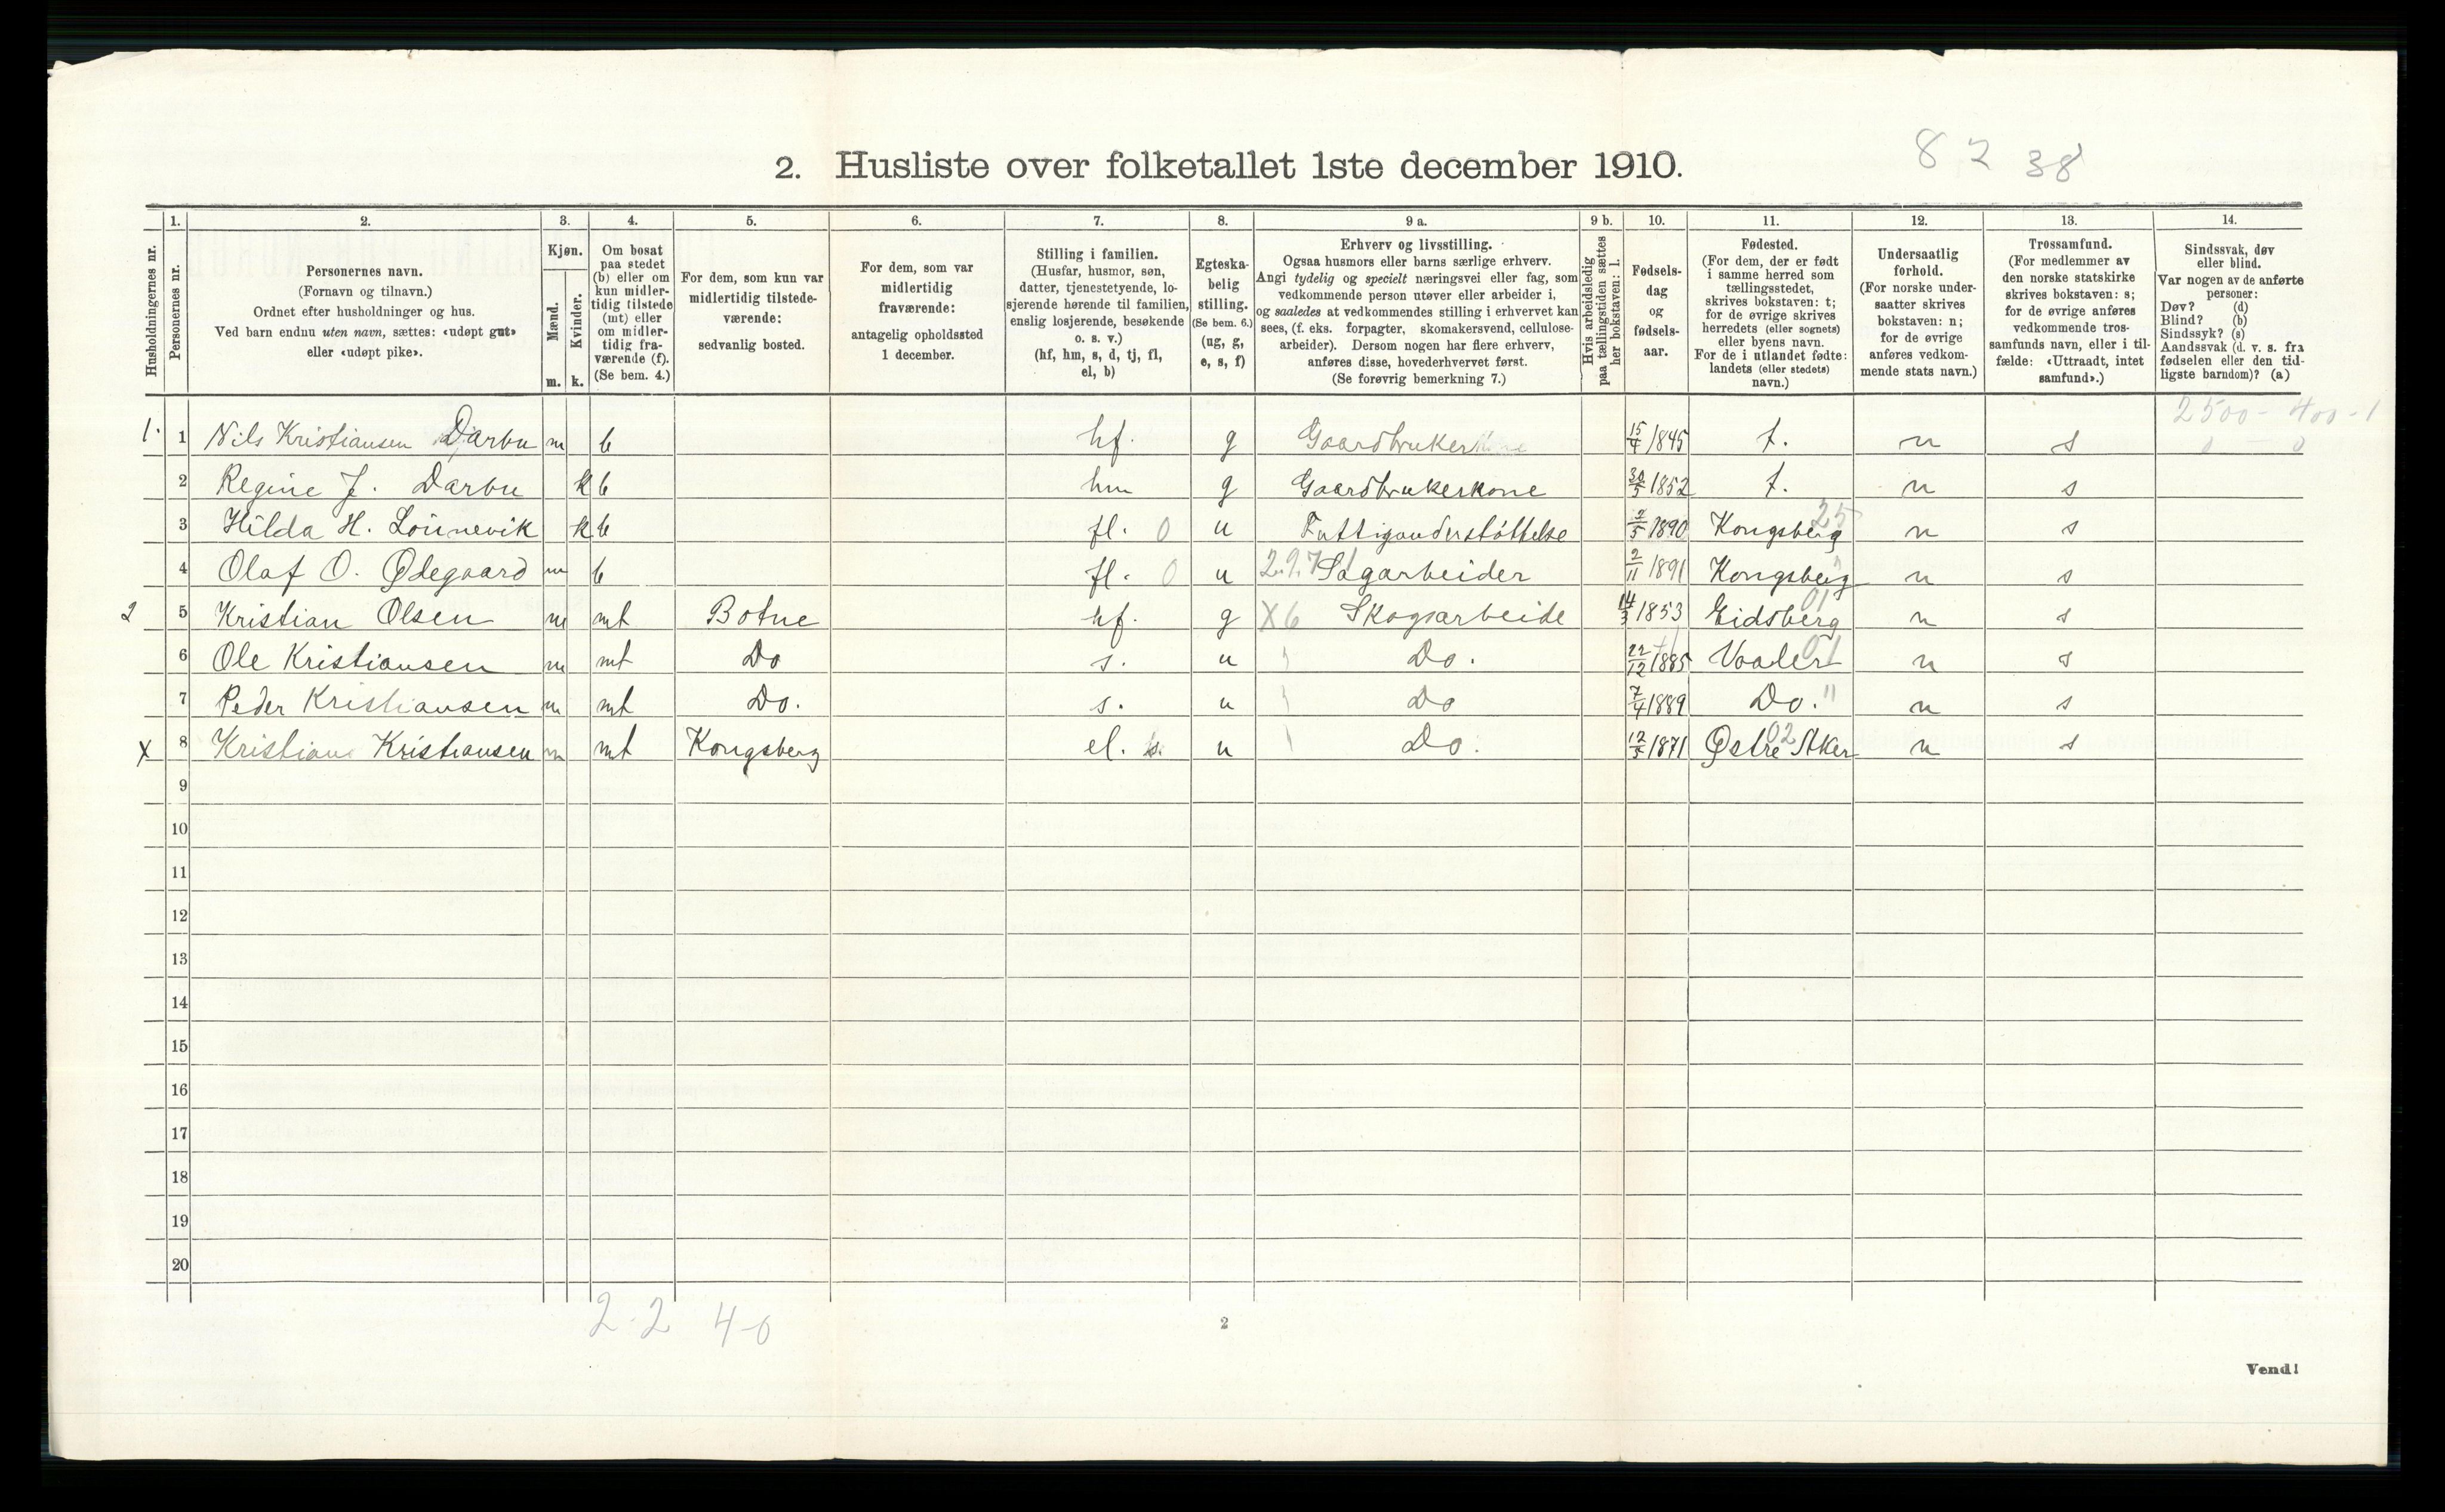 2. Husliste over folketallet 1ste december 1910.
8 2 38
Husholdningernes nr.
1. Personernes nr.
2. Personernes navn.
(Fornavn og tilnavn.)
Ordnet efter husholdninger og hus.
Ved barn endnu uten navn, sættes: «udøpt gut»
eller «udøpt pike».
3. Kjøn.
Mænd. Kvinder.
m. k.
4. Om bosat
paa stedet
(b) eller om
kun midler-
tidig tilstede
(mt) eller
om midler-
tidig fra-
værende (f).
(Se bem. 4.)
5. For dem, som kun var
midlertidig tilstede-
værende:
sedvanlig bosted.
6. For dem, som var
midlertidig
fraværende:
antagelig opholdssted
1 december.
7. Stilling i familien.
(Husfar, husmor, søn,
datter, tjenestetyende, lo-
sjerende hørende til familien,
enslig losjerende, besøkende
o. s. v.)
(hf, hm, s, d, tj, fl,
el, b)
8. Egteska-
belig
stilling.
(Se bem. 6.)
(ug, g,
e, s, f)
9 a. Erhverv og livsstilling.
Ogsaa husmors eller barns særlige erhverv.
Angi tydelig og specielt næringsvei eller fag, som
vedkommende person utøver eller arbeider i,
og saaledes at vedkommendes stilling i erhvervet kan
sees, (f. eks. forpagter, skomakersvend, cellulose-
arbeider). Dersom nogen har flere erhverv,
anføres disse, hovederhvervet først.
(Se forøvrig bemerkning 7.)
9 b. Hvis arbeidsledig
paa tællingstiden sættes
her bokstaven: l.
10. Fødsels-
dag
og
fødsels-
aar.
11. Fødested.
(For dem, der er født
i samme herred som
tællingsstedet,
skrives bokstaven: t;
for de øvrige skrives
herredets (eller sognets)
eller byens navn.
For de i utlandet fødte:
landets (eller stedets)
navn.)
12. Undersaatlig
forhold.
(For norske under-
saatter skrives
bokstaven: n;
for de øvrige
anføres vedkom-
mende stats navn.)
13. Trossamfund.
(For medlemmer av
den norske statskirke
skrives bokstaven: s;
for de øvrige anføres
vedkommende tros-
samfunds navn, eller i til-
fælde: «Uttraadt, intet
samfund».)
14. Sindssvak, døv
eller blind.
Var nogen av de anførte
personer:
Døv? (d)
Blind? (b)
Sindssyk? (s)
Aandssvak (d. v. s. fra
fødselen eller den tid-
ligste barndom)? (a)
2500 - 400 - 1
1. 1 Nils Kristiansen Darbu m b hf. g Gaardbruker 15/4 1845 t. n s 0 - 0
2 Regine J. Darbu k b hm g Gaardbrukerkone 30/5 1852 t. n s
3 Hilda H. Lönnevik k b fl. 0 u Fattigunderstøttelse 2/5 1890 Kongsberg 25 n s
4 Olaf O. Ødegaard m b fl. 0 u 2.9.7 Sagarbeider 2/11 1891 Kongsberg " n s
2 5 Kristian Olsen m mt Botne hf. g X6 Skogsarbeide 14/3 1853 Eidsberg 01 n s
6 Ole Kristiansen m mt Do s. u Do. 22/12 1885 Vaaler 01 n s
7 Peder Kristiansen m mt Do. s. u Do 7/4 1889 Do. " n s
X 8 Kristian Kristiansen m mt Kongsberg el. s. u Do. 12/5 1871 Østre Aker 02 n s
9
10
11
12
13
14
15
16
17
18
19
20
2-2 4-0
2
Vend!